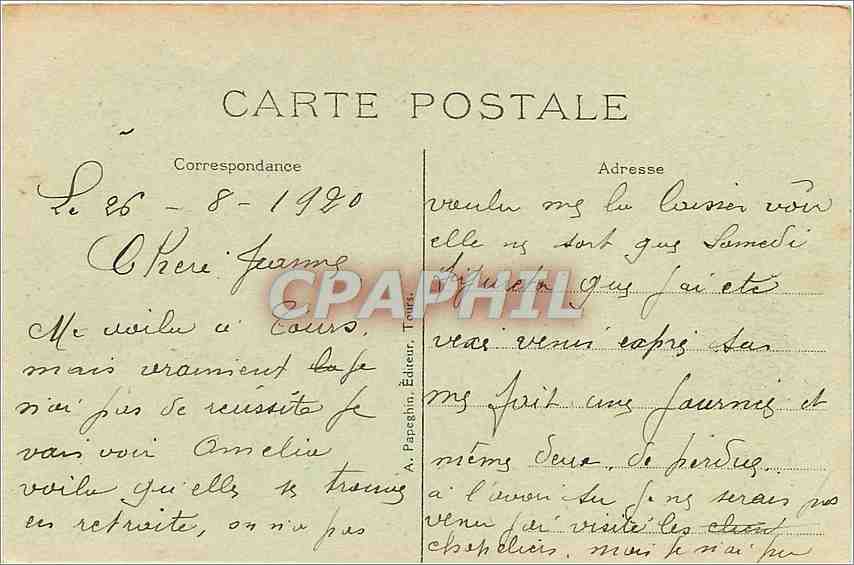 CARTE POSTALE
Correspondance
Le 26 - 8 - 1920
Chere Jeanne
Me voila a Tours,
mais vraiment la je
n'ai pas de reussite je
vais voir Amelia
voila qu'elle se trouve
en retraite, on n'a pas
A. Papeghin, Éditeur, Tours.
Adresse
voulu me la laisser voir
elle ne sort que Samedi
figure toi que j'ai ete
vexe venir expres sa
me fait une journee et
même deux, de perdue.
a l'avoir su je ne serais pas
venu j'ai visité les client
chapeliers, mais je n'ai pu
CPAPHIL